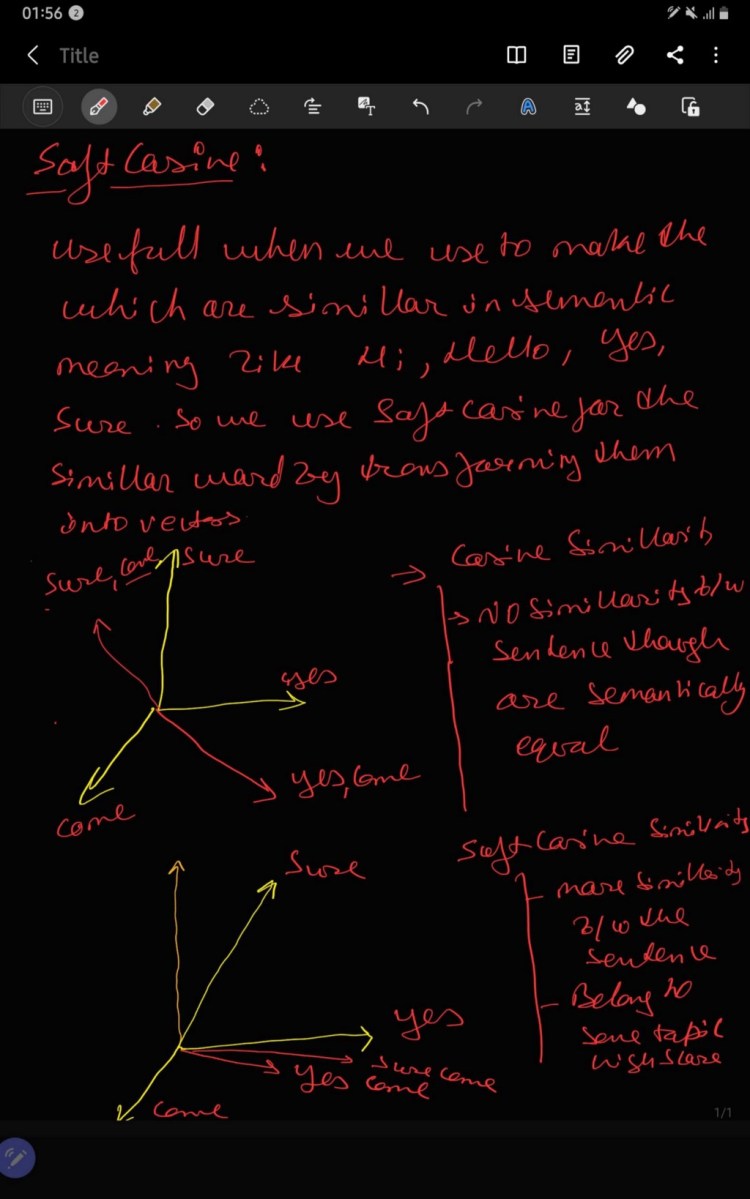 01:56 2
Title
Soft Cosine:
usefull when we use to make the
which are simillar in sementic
meaning like Hi, Hello, yes,
Sure. So we use Soft cosine for the
simillar word by transforming them
into vectors
Sure, come
Sure
yes
yes, come
come
⇒ Cosine Simillarity
→ NO Simillarity b/w
sentence though
are semantically
equal
Sure
yes
yes come
sure come
come
Soft Cosine Similarity
- more Simillarity
b/w the
sentence
- Belong to
same topic
high score
1/1